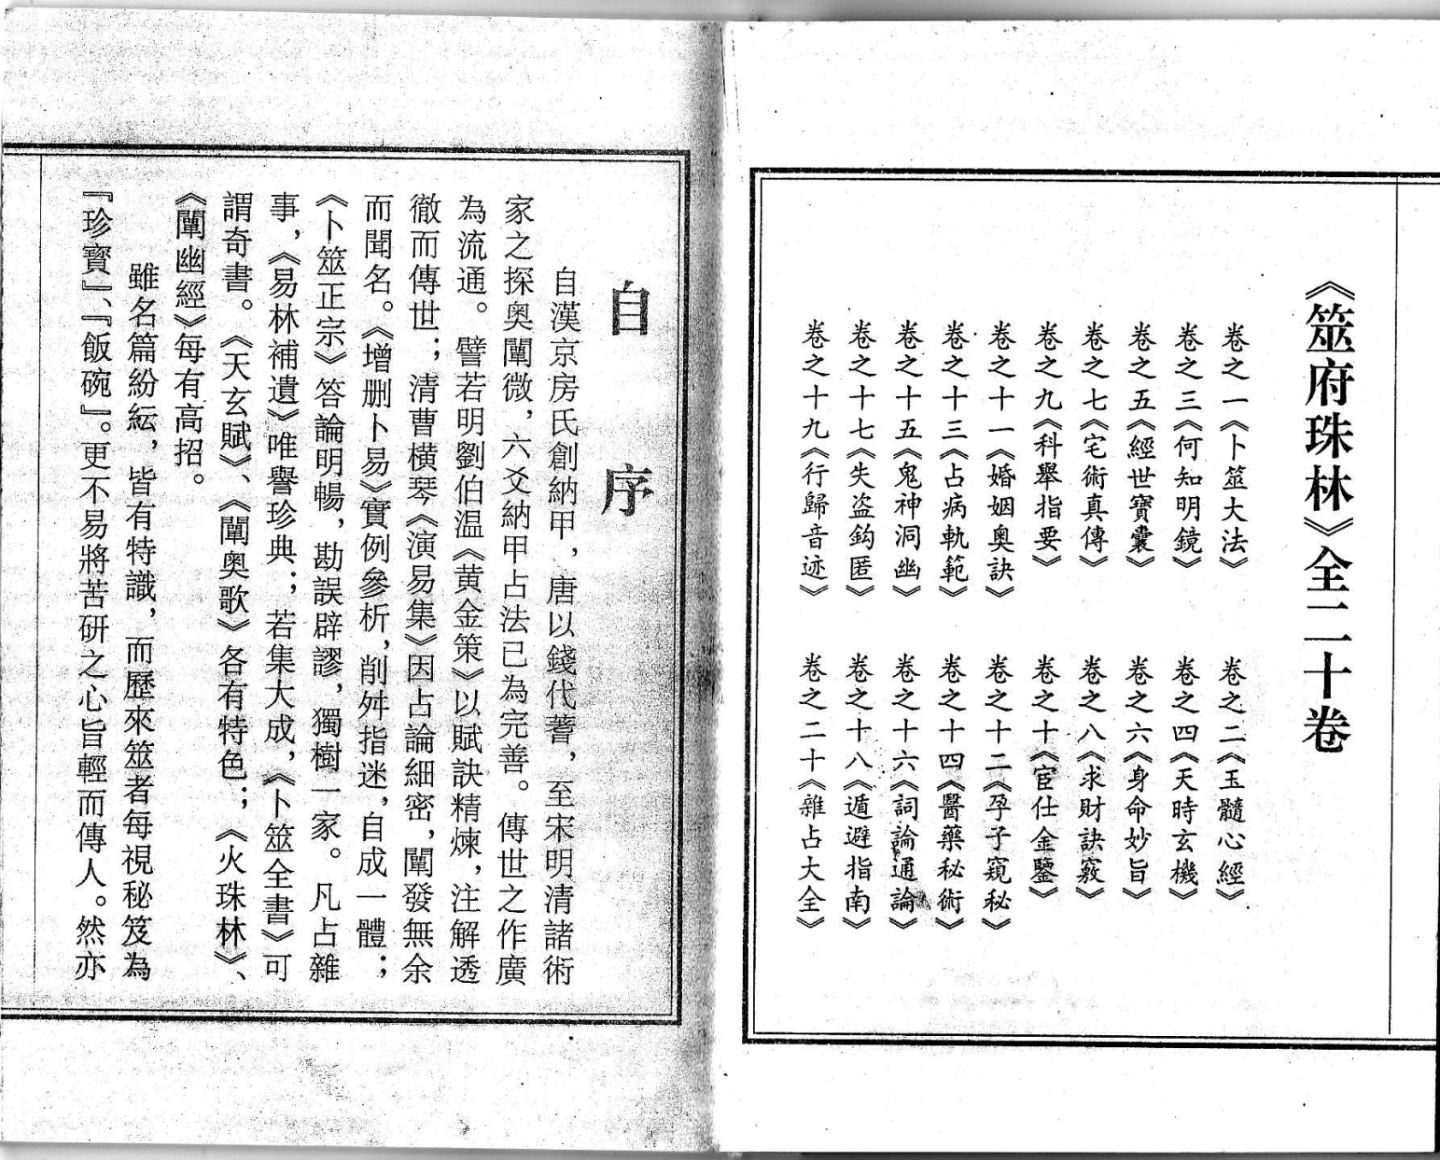 《筮府珠林》全二十卷
卷之一《卜筮大法》
卷之二《玉髓心經》
卷之三《何知明鏡》
卷之四《天時玄機》
卷之五《經世寶囊》
卷之六《身命妙旨》
卷之七《宅術真傳》
卷之八《求財訣竅》
卷之九《科舉指要》
卷之十《宦仕金鑒》
卷之十一《婚姻奧訣》
卷之十二《孕子窺秘》
卷之十三《占病軌範》
卷之十四《醫藥秘術》
卷之十五《鬼神洞幽》
卷之十六《詞論通論》
卷之十七《失盗鈎匿》
卷之十八《遁避指南》
卷之十九《行歸音迹》
卷之二十《雜占大全》
自序
自漢京房氏創納甲，唐以錢代蓍，至宋明清諸術
家之探奧闡微，六爻納甲占法已為完善。傳世之作廣
為流通。譬若明劉伯温《黄金策》以賦訣精煉，注解透
徹而傳世；清曹橫琴《演易集》因占論細密，闡發無余
而聞名。《增删卜易》實例參析，削舛指迷，自成一體；
《卜筮正宗》答論明暢，勘誤辟謬，獨樹一家。凡占雜
事，《易林補遺》唯譽珍典；若集大成，《卜筮全書》可
謂奇書。《天玄賦》、《闡奥歌》各有特色；《火珠林》、
《闡幽經》每有高招。
雖名篇紛紜，皆有特識，而歷來筮者每視秘笈為
『珍寳』、『飯碗』。更不易將苦研之心旨輕而傳人。然亦